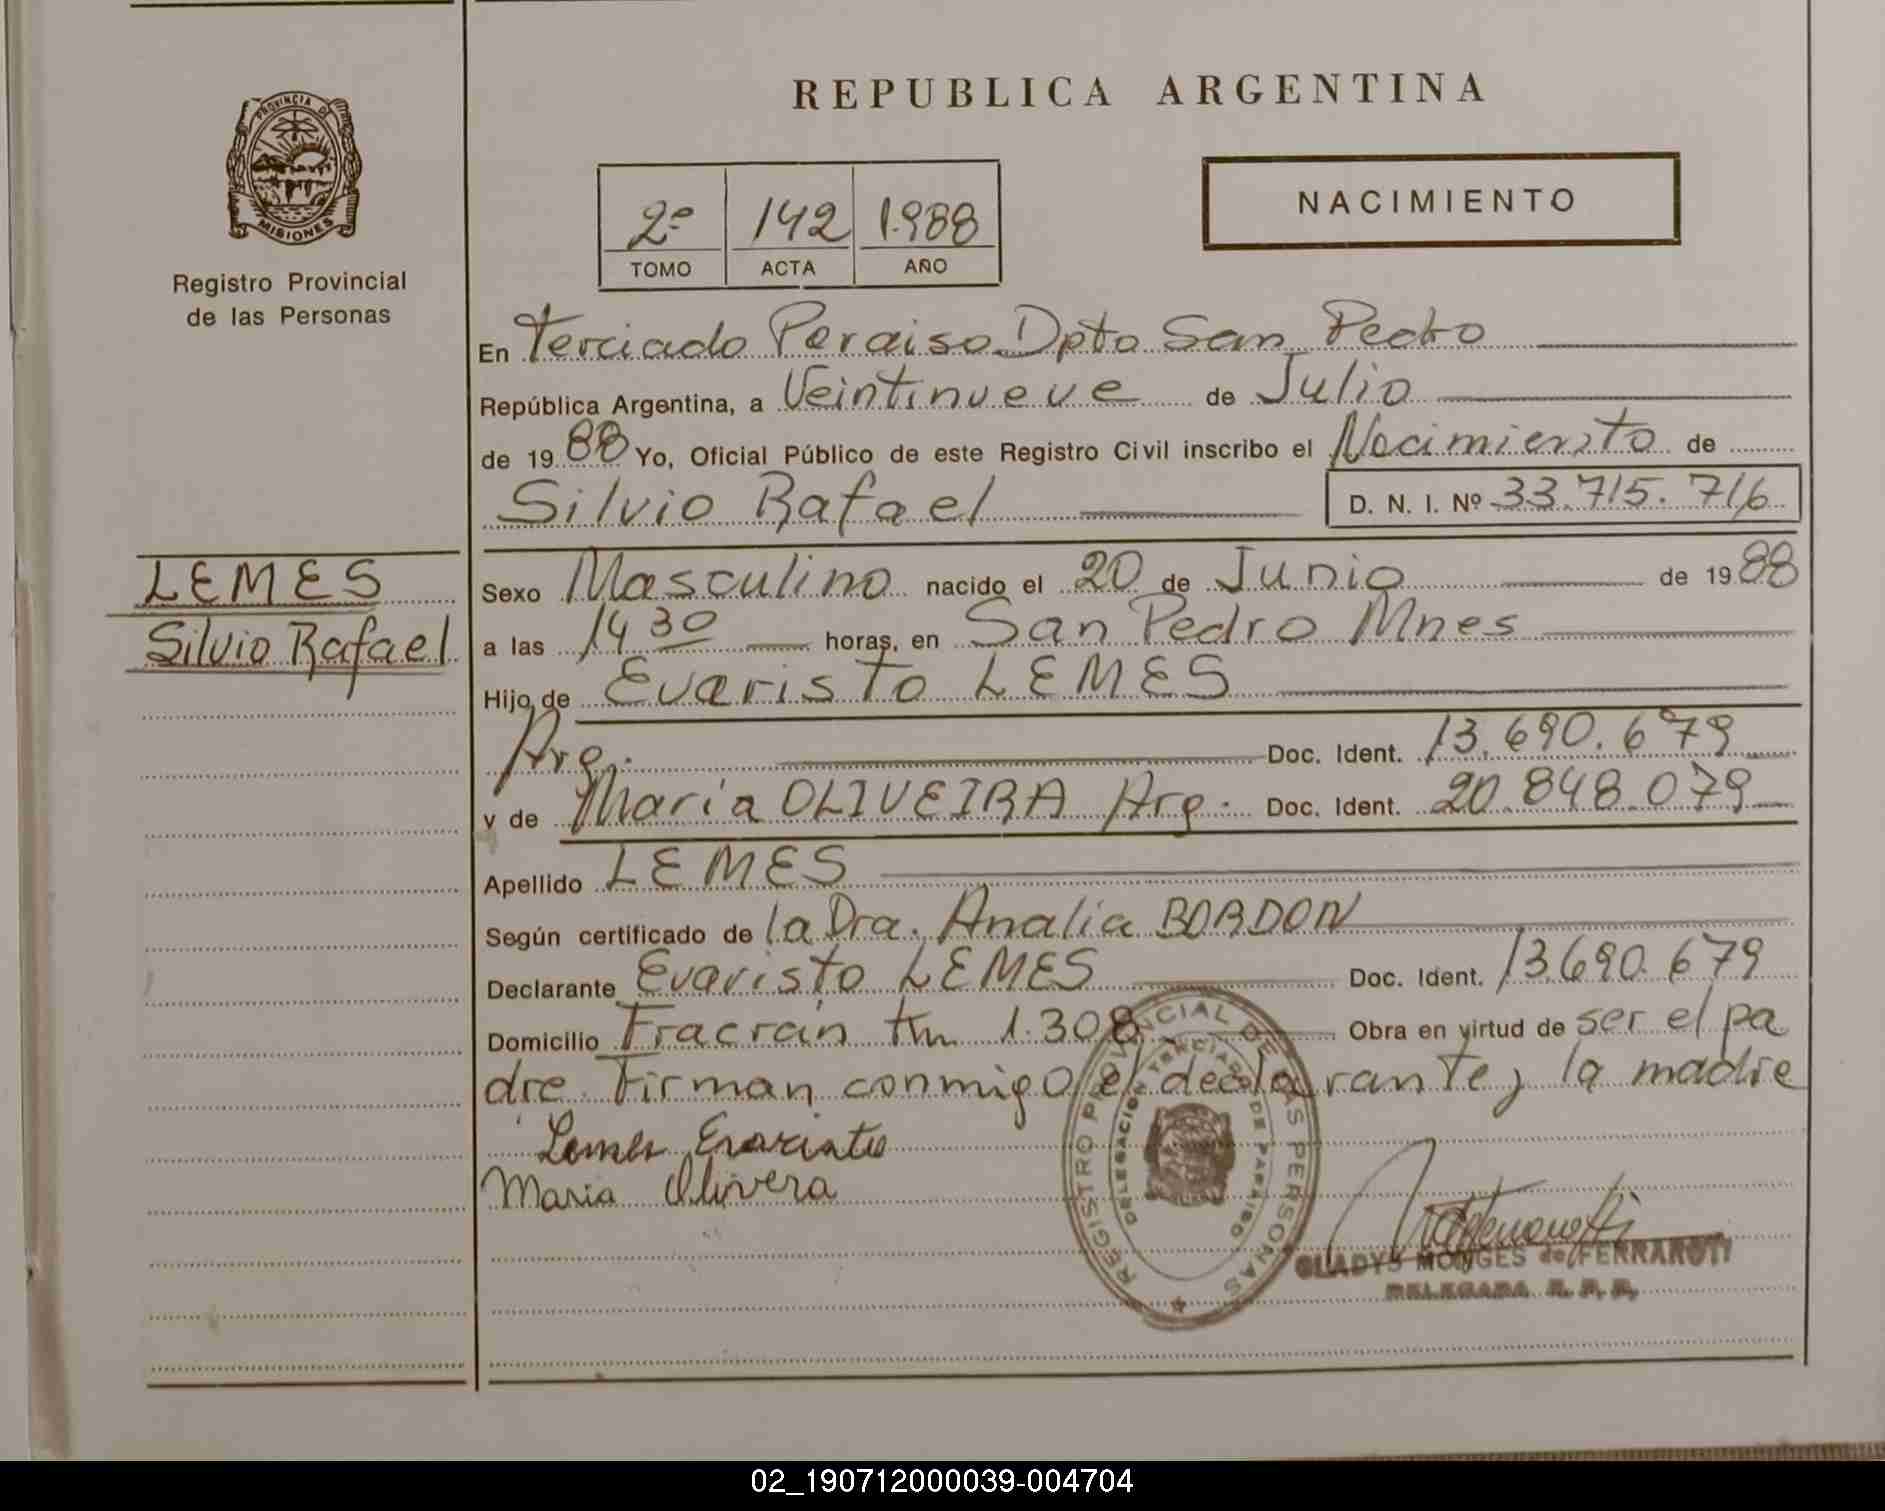 REPUBLICA ARGENTINA
PROVINCIA DE
MISIONES
Registro Provincial
de las Personas
2º 142 1.988
TOMO ACTA AÑO
NACIMIENTO
En Terciado Peraiso Dpto San Pedro
República Argentina, a Veintinueve de Julio
de 1988 Yo, Oficial Público de este Registro Civil inscribo el Nacimiento de
Silvio Rafael D. N. I. Nº 33.715.716
LEMES
Silvio Rafael
Sexo Masculino nacido el 20 de Junio de 1988
a las 14 30 horas, en San Pedro Mnes
Hijo de Evaristo LEMES
Arg. Doc. Ident. 13.690.679
y de Maria OLIVEIRA Arg. Doc. Ident. 20.848.079
Apellido LEMES
Según certificado de la Dra. Analia BORDON
Declarante Evaristo LEMES Doc. Ident. 13.690.679
Domicilio Fracrán Km 1.308 Obra en virtud de ser el pa
dre. Firman conmigo el declarante y la madre
Lemes Evaristo
Maria Olivera
REGISTRO PROVINCIAL DE LAS PERSONAS
DELEGACION TERCIADO DE PARAISO
GLADYS MONGES de FERRAROTI
DELEGADA R. P. P.
02_190712000039-004704